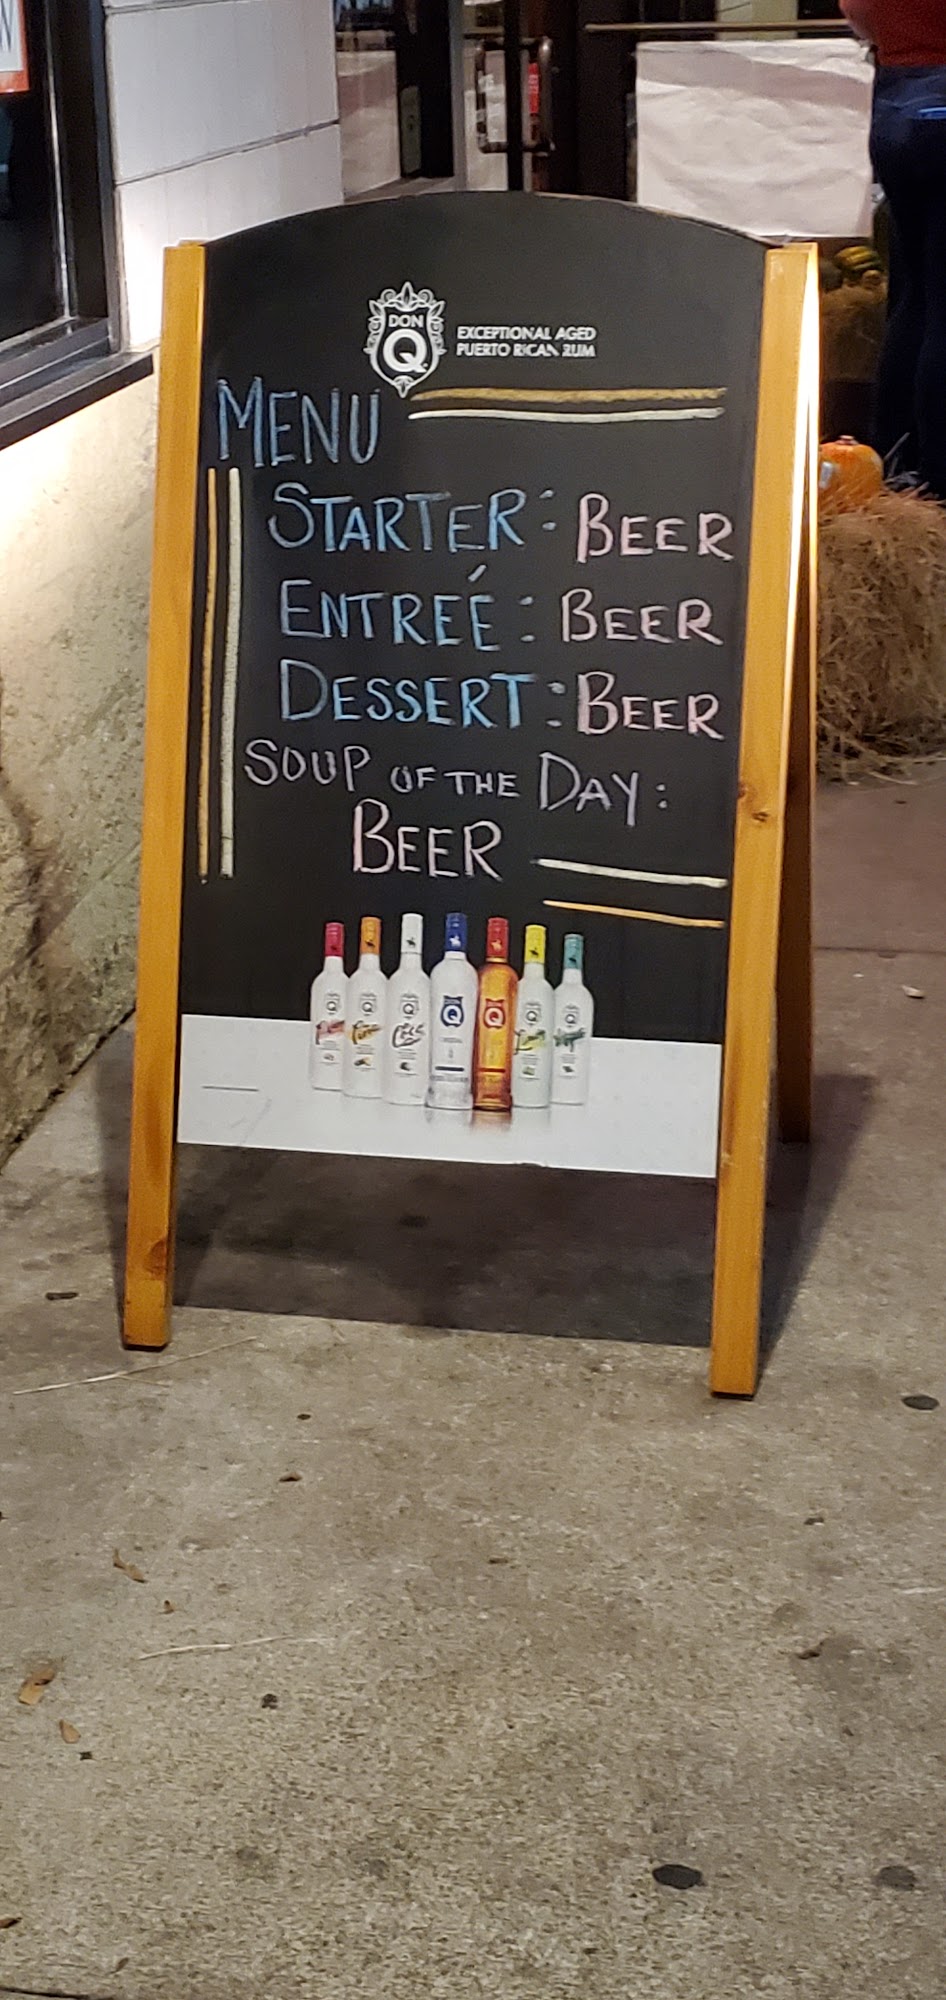 DON
Q
EXCEPTIONAL AGED
PUERTO RICAN RUM
MENU
STARTER: BEER
ENTREÉ: BEER
DESSERT: BEER
SOUP OF THE DAY:
BEER